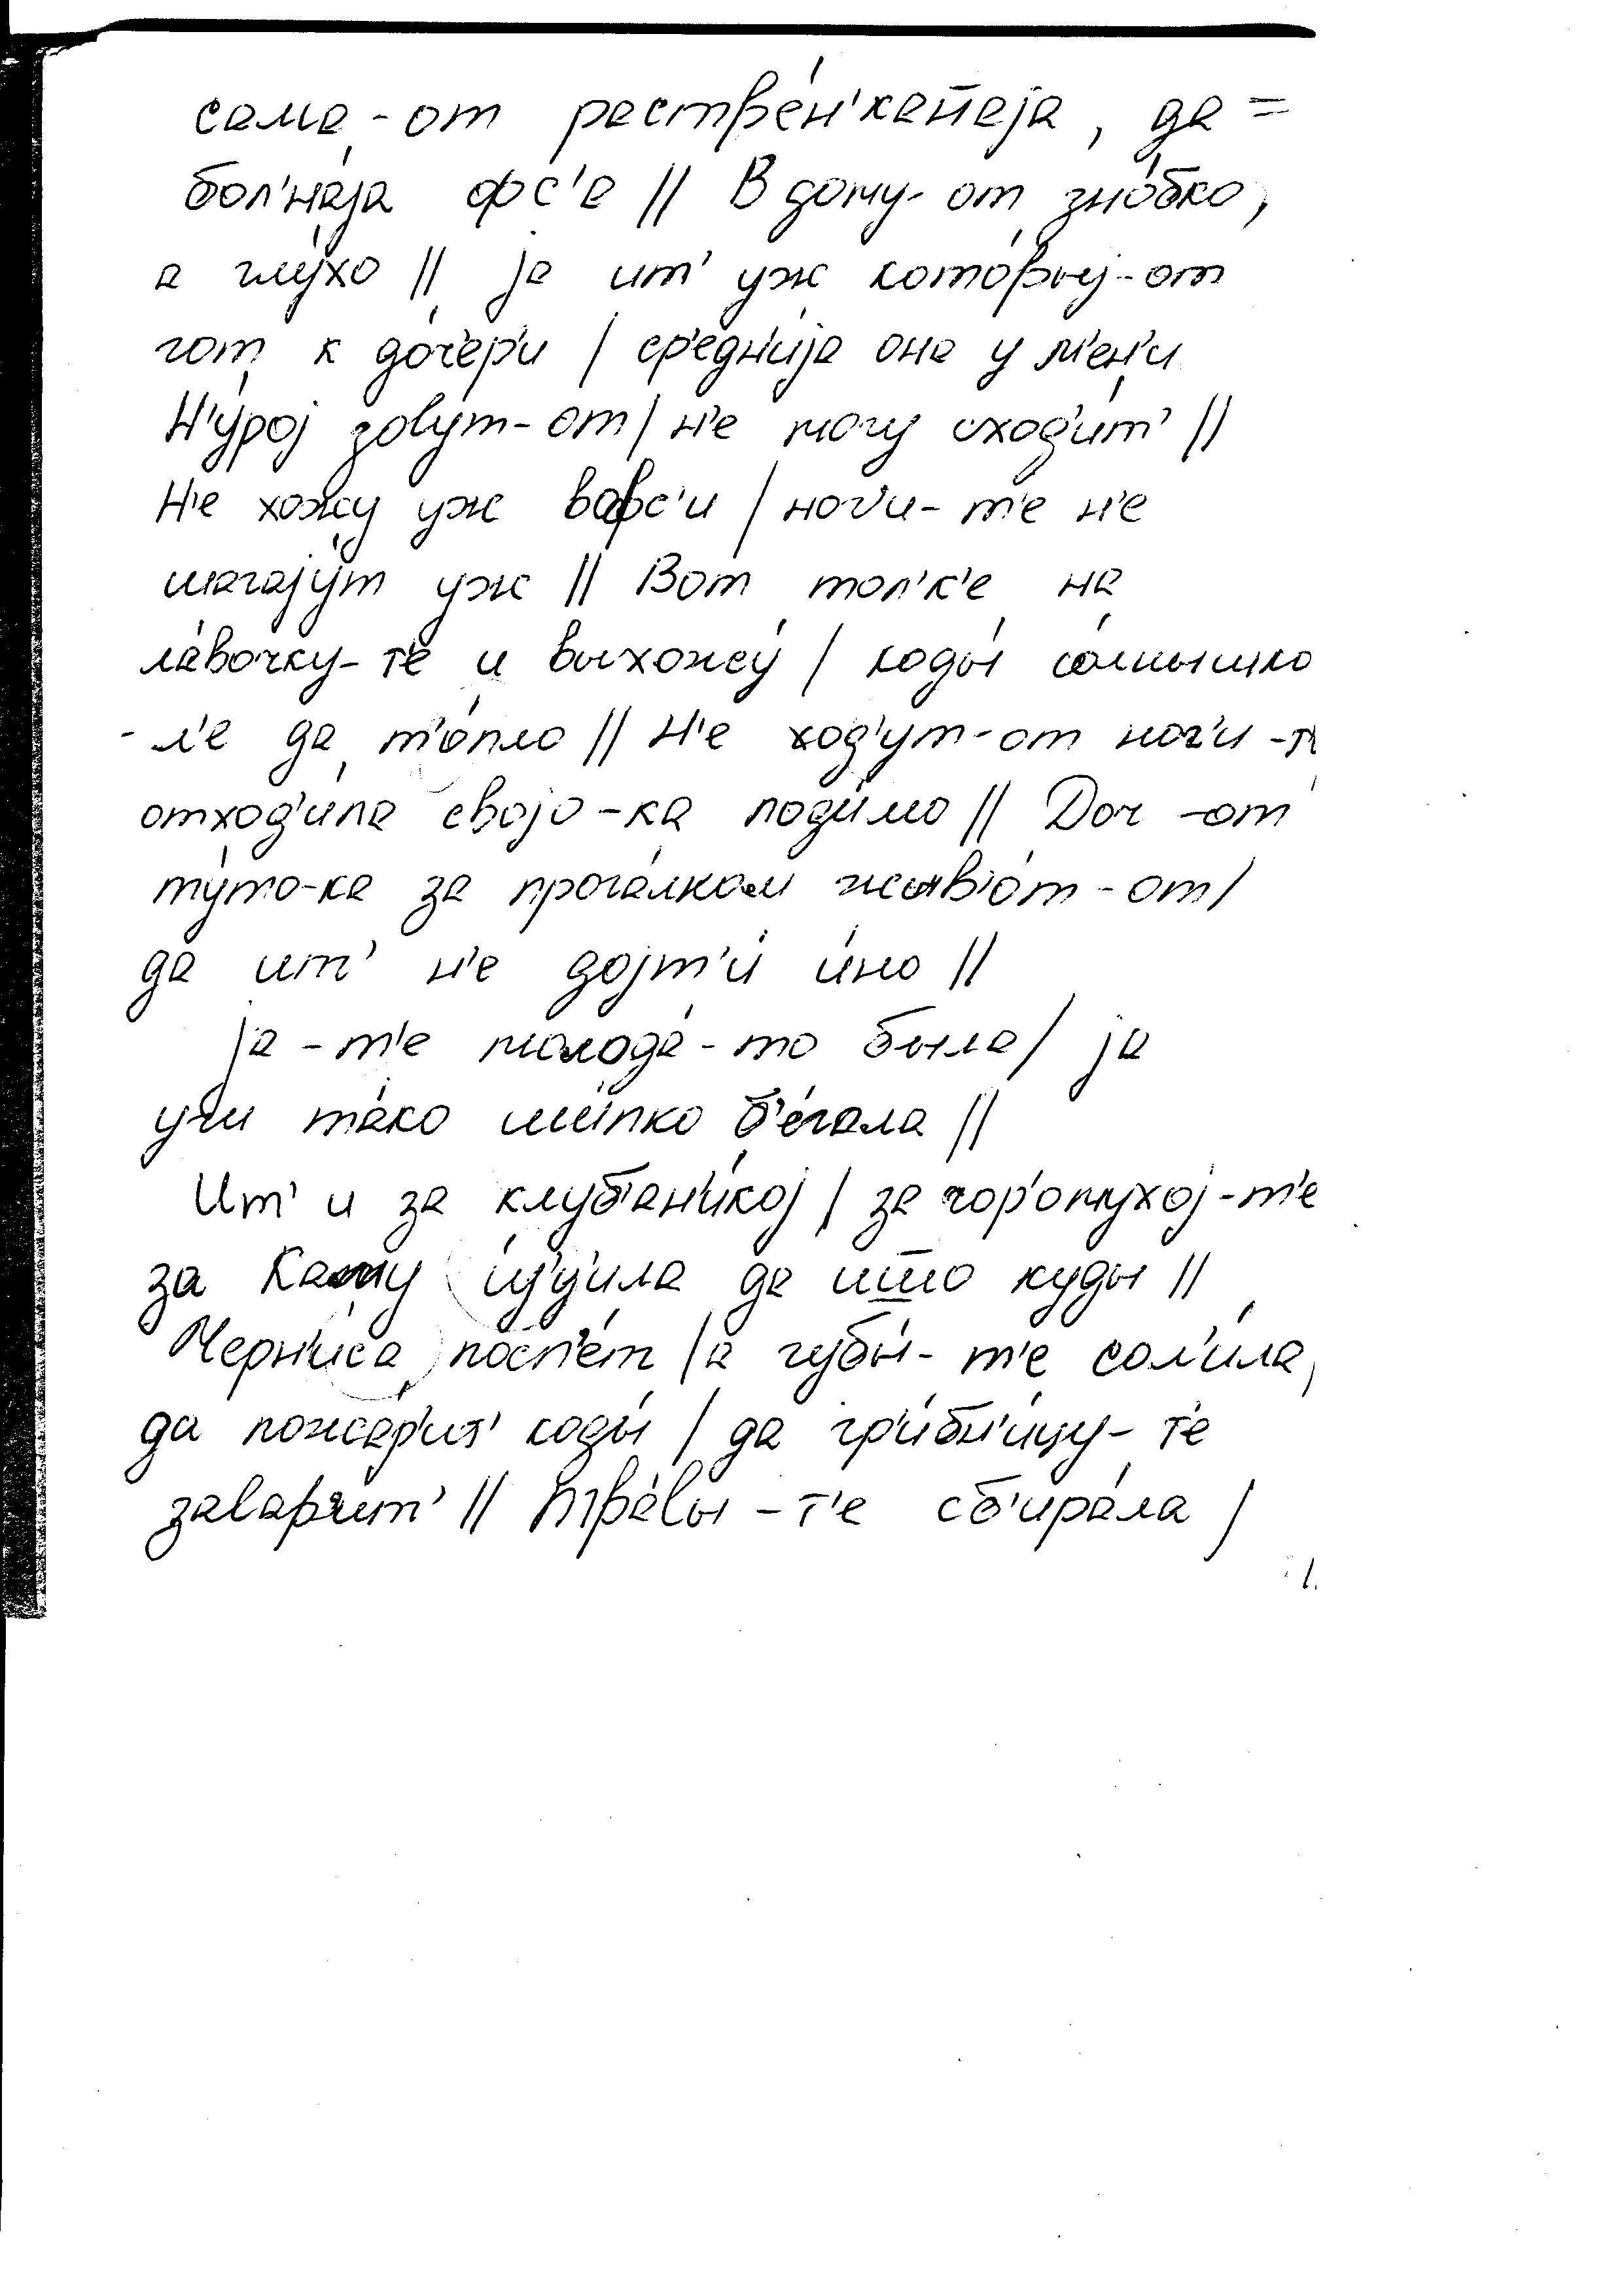 сама-от растве́н'халаjа, да =
бол'на́jа фс'а || В дому-от зно́бко,
а глу́хо || jа ит' уж кото́рыj-от
гот к до́чер'и | ср'едн'иjа она у м'ен'и
Н'у́роj зову́т-от | н'е могу сход'и́т' ||
Н'е хожу уж вофс'и | ног'и-т'е н'е
шагаjу́т уж || Вот тол'к'е на
ла́вочку-т'е и выхожу́ | коды́ со́лнышко
-л'е да т'о́пло || Н'е ход'ут-от ног'и-т
отход'и́ла своjо-ка поди́мо || Доч-от
ту́то-ка за прога́лком жыв'о́т-от |
да ит' н'е доjт'и́ и́но ||
jа-т'е молода́-то была | jа
учи та́ко ши́пко б'е́гала ||
Ит' и за клуб'ан'и́коj | за чор'о́мухоj-т'е
за Каму и́з'д'ила да ишшо куды ||
Черн'и́са посп'е́т | а губы́-т'е сол'и́ла,
да пожар'ит' коды́ | да гр'и́бн'и́цу-т'е
завар'и́т' || Тра́вы-т'е сб'ира́ла |